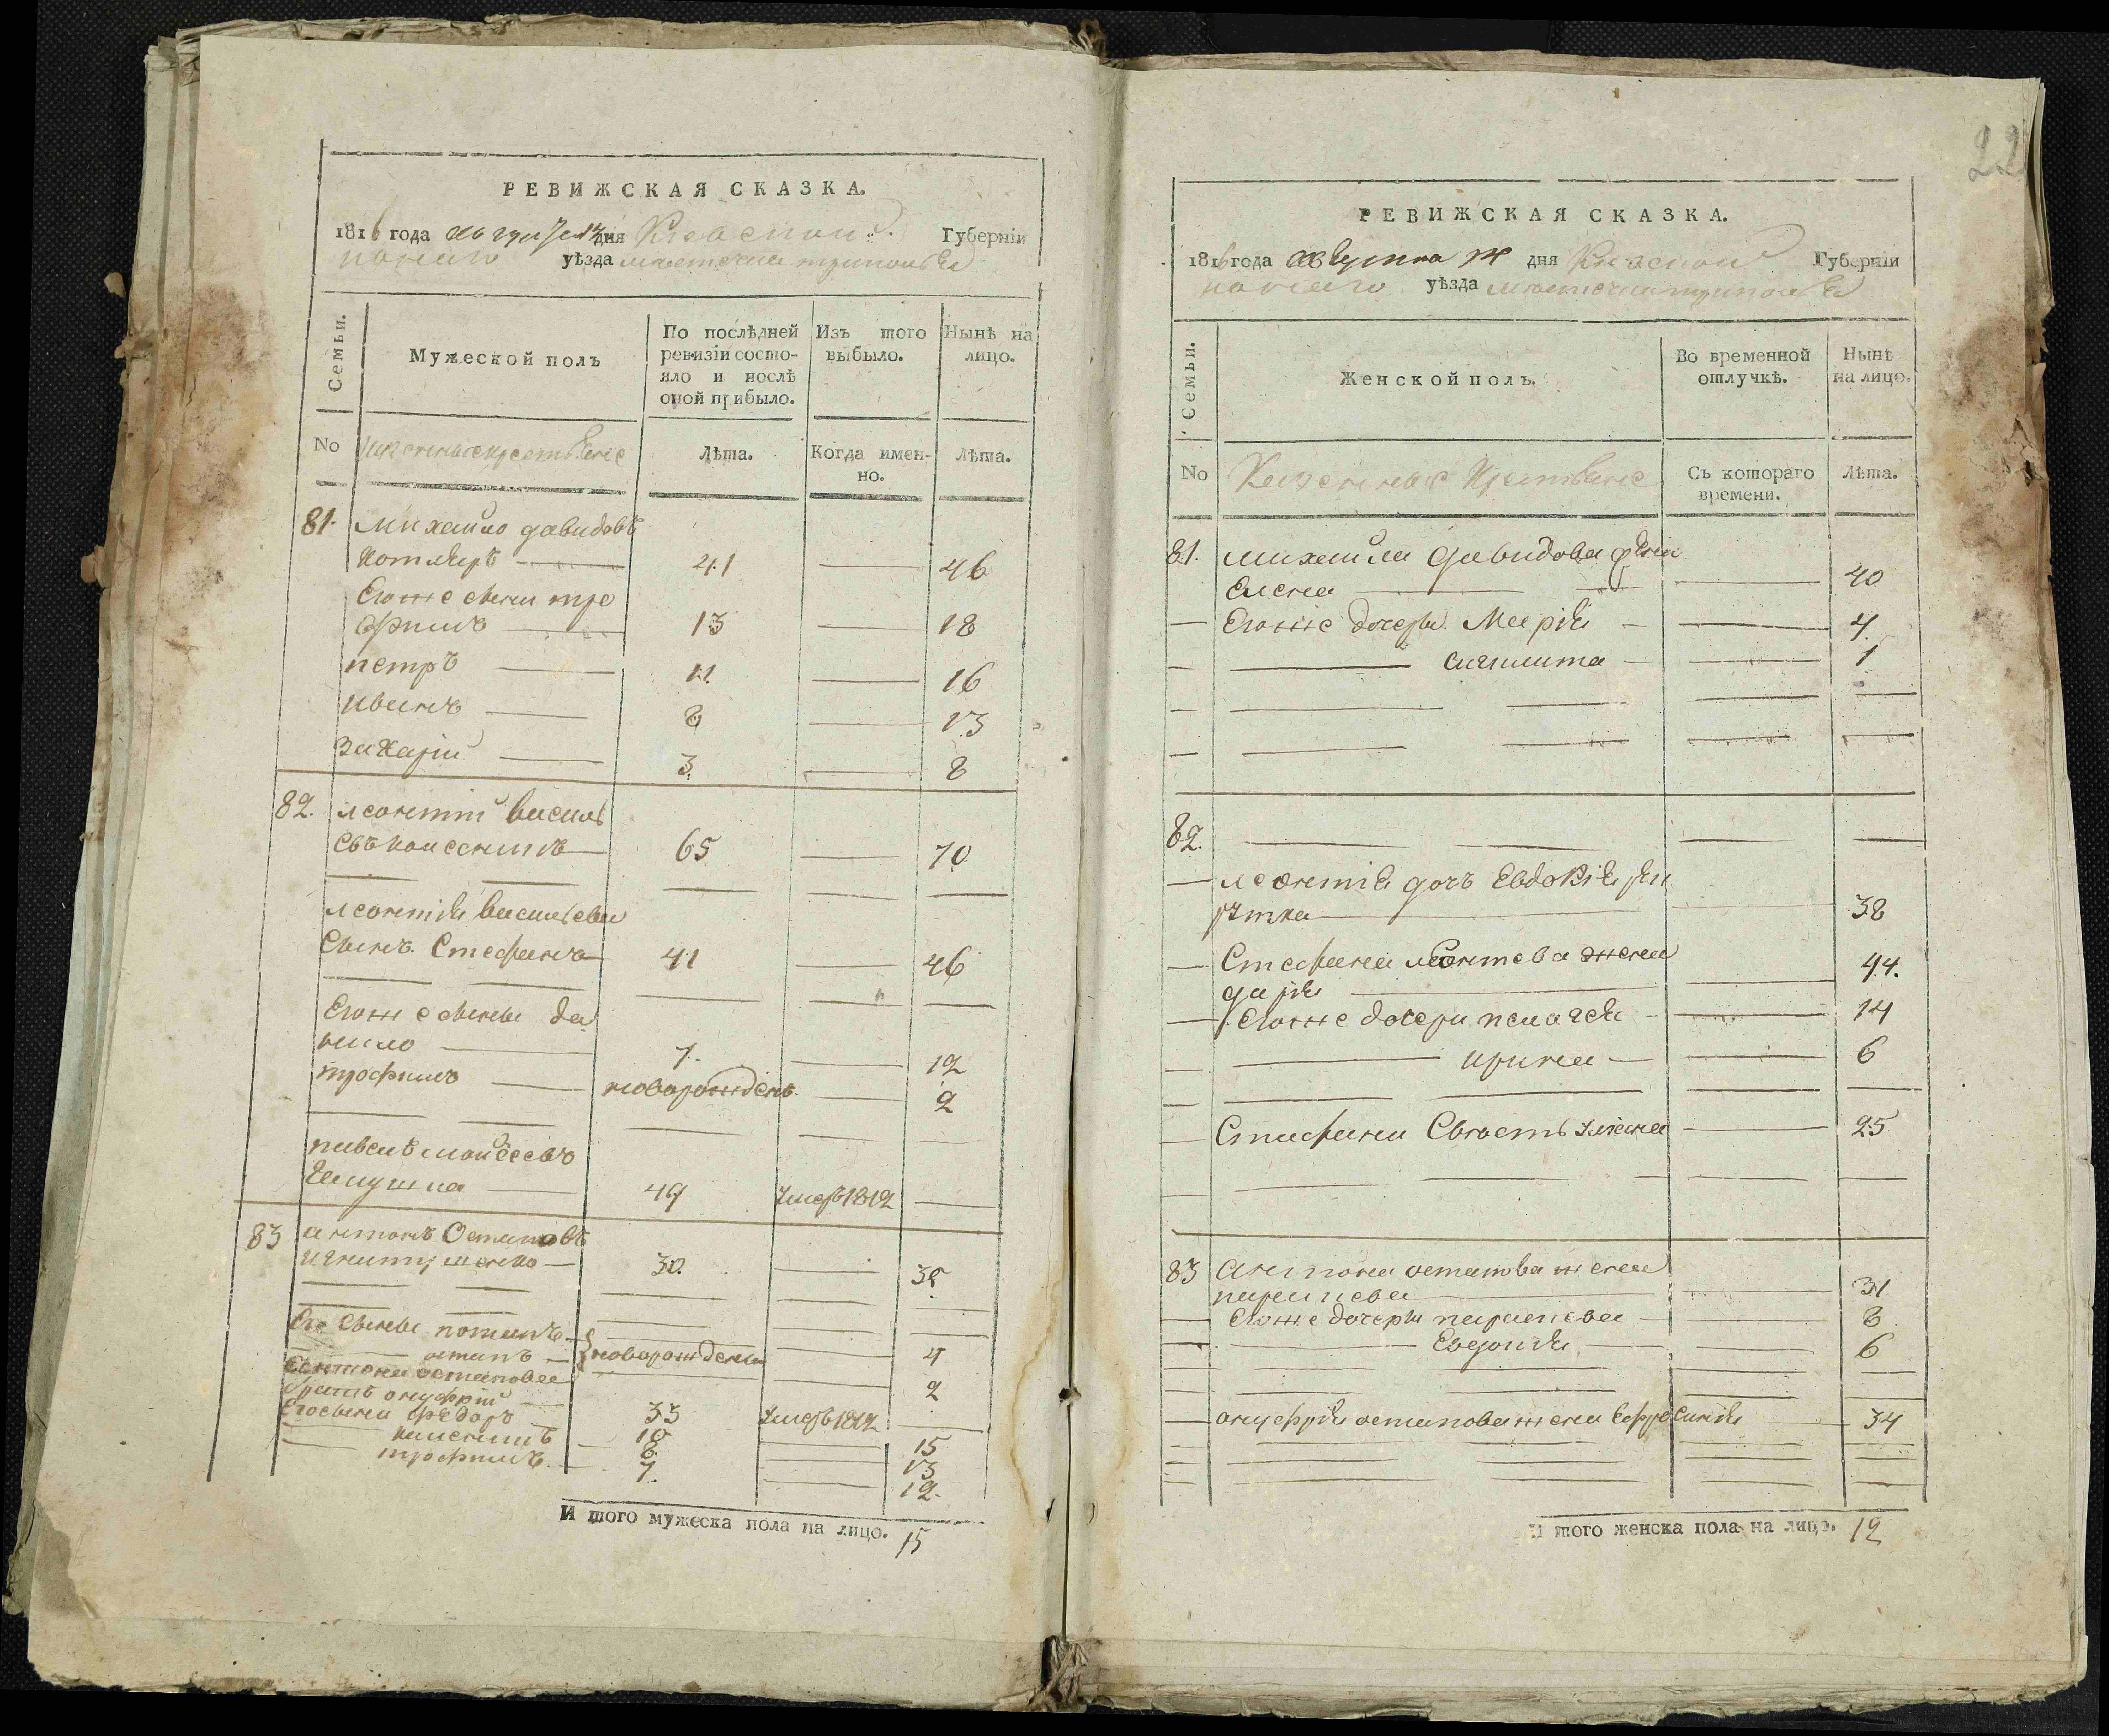 РЕВИЖСКАЯ СКАЗКА.
1816 года августа 14 дня Киевской Губернiи
уѣзда местечка триполья
Семьи.
Мужеской полъ
По послѣдней ревизiи состояло и послѣ оной прибыло.
Изъ того выбыло.
Нынѣ на лицо.
No
казенные крестьяне
Лѣта.
Когда именно.
Лѣта.
81. Михайло давидовъ
Котляръ 41 46
Егоже сыны тро
фимъ 13 18
петръ 11 16
иванъ 8 13
Захарiй 3. 8
82. леонтiй василь
евъ 65 70
леонтiя васильева
Сынъ Стефанъ 41 46
Егоже сыны да
нило 7. 12
трофимъ новорожденъ 2
павелъ мойсеевъ
49 умеръ 1812
83 антонъ Остаповъ
игнатушенко 30. 35
Его Сыны потапъ 4
остапъ новорожденны 2
антона остапова
братъ онуфрiй 33 умеръ 1812
Егосыны федоръ 10 15
8 13
трофимъ. 7. 12.
И того мужеска пола на лицо. 15
22
РЕВИЖСКАЯ СКАЗКА.
1816 года августа 14 дня Киевской Губернiи
уѣзда местечка триполья
Семьи.
Женской полъ.
Во временной отлучкѣ.
Нынѣ на лицо.
No
Казенные Крестьяне
Съ котораго времени.
Лѣта.
81. михайла давидова жена
Елена 40
Егоже дочери Марiя 4.
1
82.
леонтiя дочь Евдокiя
38
Стефана леонтева жена
дарiя 44.
Егоже дочери пелагея 14
ирина 6
Стефана 25
83 Антона остапова жена
параскева 31
Егоже дочери параскева 8
Евдокiя 6
онуфрiя остапова жена Ефросинiя 34
И того женска пола на лицо. 12